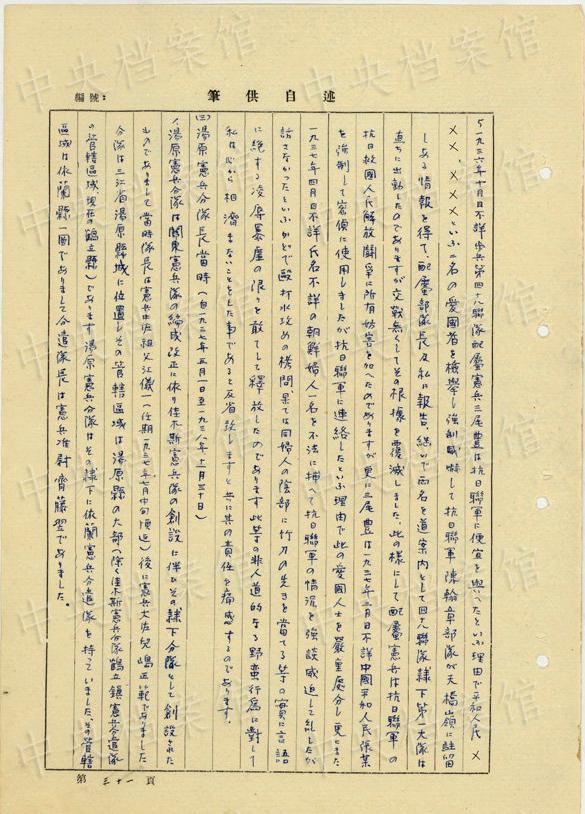 編號：
筆供自述
5 一九三六年十月日不詳步兵第四十九聯隊配屬憲兵三尾豊は抗日聯軍に便宜を與へたといふ理由で平和人民 ×
××、×××といふ二名の愛國者を檢擧し强制威嚇して抗日聯軍陳翰章部隊が天橋嶺に駐留
しある情報を得て、配屬部隊長及私に報告、繼いで两名を道案内として四十九聯隊隸下第一大隊は
直ちに出動したのでありますが交戰無くしてその根據を覆滅しました、此の様にして配屬憲兵は抗日聯軍の
抗日救國人民解放鬪爭に所有妨害を加へたのでありますが更に三尾豊は一九三七年三月日不詳中國平和人民保某
を强制して密偵に使用しましたが抗日聯軍に連絡したといふ理由で此の愛國人士を嚴重處分し更にまた
一九三七年四月日不詳氏名不詳の朝鮮婦人一名を不法に捕へて抗日聯軍の情況を强談威迫して糺したが
話さなかったといふかどで毆打水攻めの拷問、果ては同婦人の陰部に竹刀の先きを當てる等の實に言語
に絶する凌辱暴虐の限りを敢てして釋放したのであります此等の非人道的なる野蛮行爲に對して
私は心から相濟まないことをした事であると反省致しますと共に其の責任を痛感するのであります。
(三)湯原憲兵分隊長當時（自一九三七年五月一日至一九三八年十一月三十日）
1、湯原憲兵分隊は関東憲兵隊の編成改正に依り佳木斯憲兵隊の創設に伴ひその隷下分隊として創設された
ものでありまして當時隊長は憲兵中佐祖父江儀一（任期一九三七年七月中旬頃迄）後に憲兵大佐兒嶋正範でありました
分隊は三江省湯原縣城に位置しその管轄區域は湯原縣の大部（除く佳木斯憲兵分隊鶴立鎮憲兵分遣隊
の管轄區域現在の鶴立縣）であります湯原憲兵分隊はその隷下に依蘭憲兵分遣隊を持っていました、その管轄
區域は依蘭縣一圓でありまして分遣隊長は憲兵准尉齊藤翌でありました。
第 三十一 頁
中央档案馆